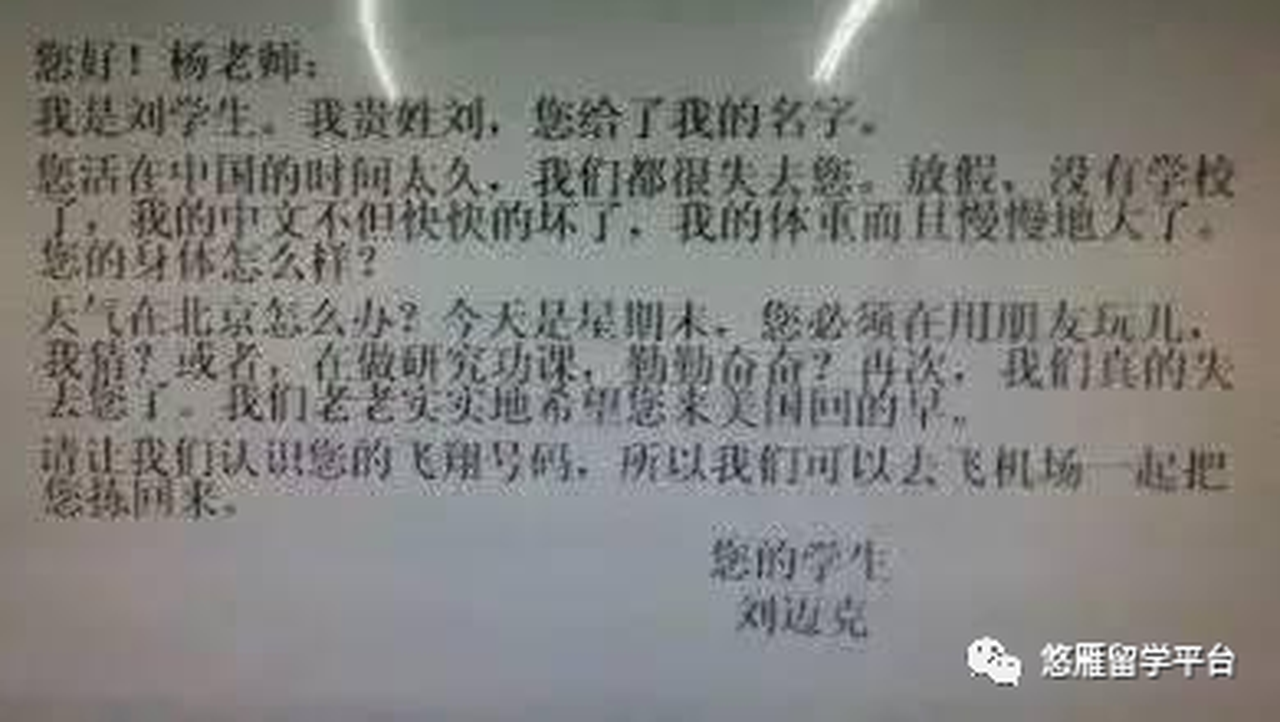 您好！杨老师：
我是刘学生。我贵姓刘，您给了我的名字。
您活在中国的时间太久，我们都很失去您。放假，没有学校
了，我的中文不但快快的坏了，我的体重而且慢慢地大了。
您的身体怎么样？
天气在北京怎么办？今天是星期末，您必须在用朋友玩儿，
我猜？或者，在做研究功课，勤勤奋奋？再次，我们真的失
去您了。我们老老实实地希望您来美国回的早。
请让我们认识您的飞翔号码，所以我们可以去飞机场一起把
您拣回来。
您的学生
刘迈克
悠雁留学平台